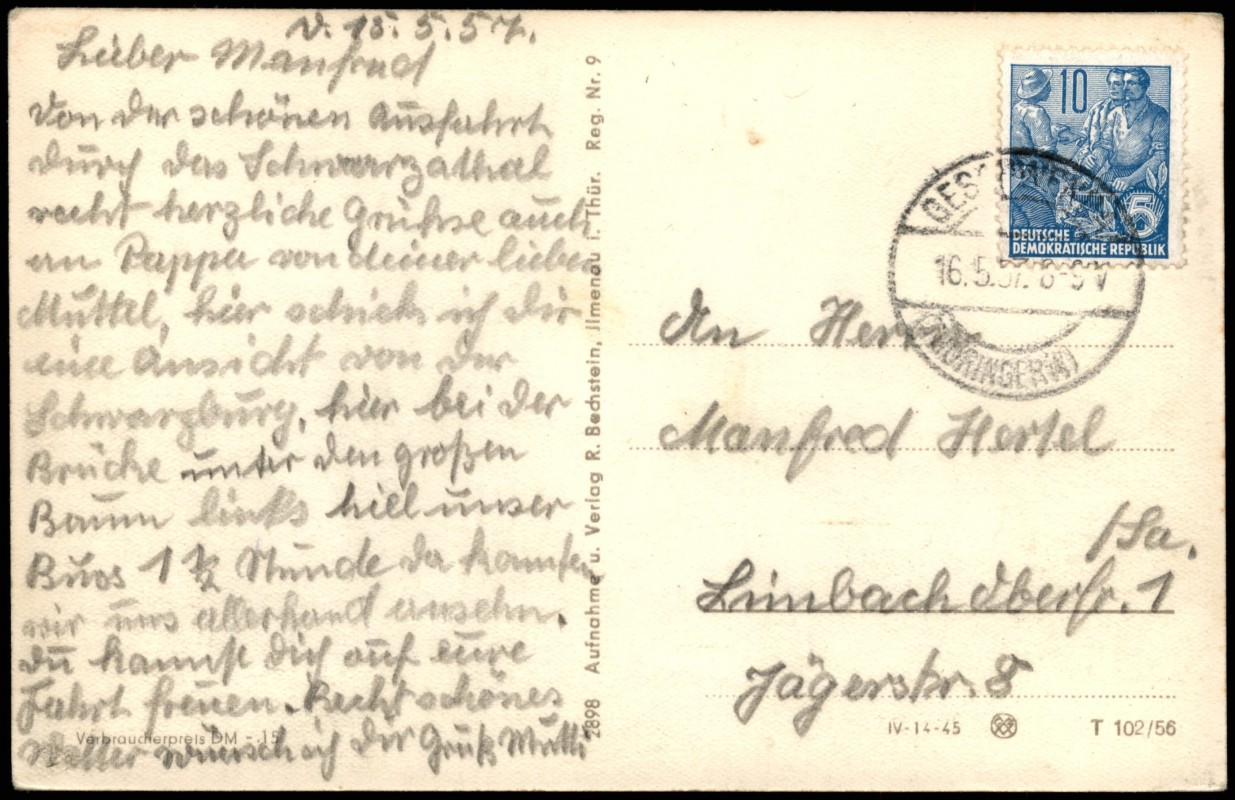 d. 15.5.57.
Lieber Manfred
von der schönen Ausfahrt
durch das Schwarzathal
recht herzliche Grühse auch
an Pappa von deiner lieben
Muttel, hier schick ich dir
eine Ansicht von der
Schwarzburg, hier bei der
Brücke unter den großen
Baum links hiel unser
Buos 1 1/2 Stunde da kannten
wir uns allerhand ansehn.
du kannst dich auf eure
Fahrt freuen. Recht schönes
Wetter wünsch ich dir Gruß Mutti
Verbraucherpreis DM -.15
2898 Aufnahme u. Verlag R. Bechstein, Jlmenau i. Thür. Reg. Nr. 9
10
5
DEUTSCHE
DEMOKRATISCHE REPUBLIK
16.5.57. 8-9V
(THÜRINGERW)
An Herrn
Manfred Hertel
/Sa.
Limbach Oberfr. 1
Jägerstr. 8
IV-14-45
T 102/56